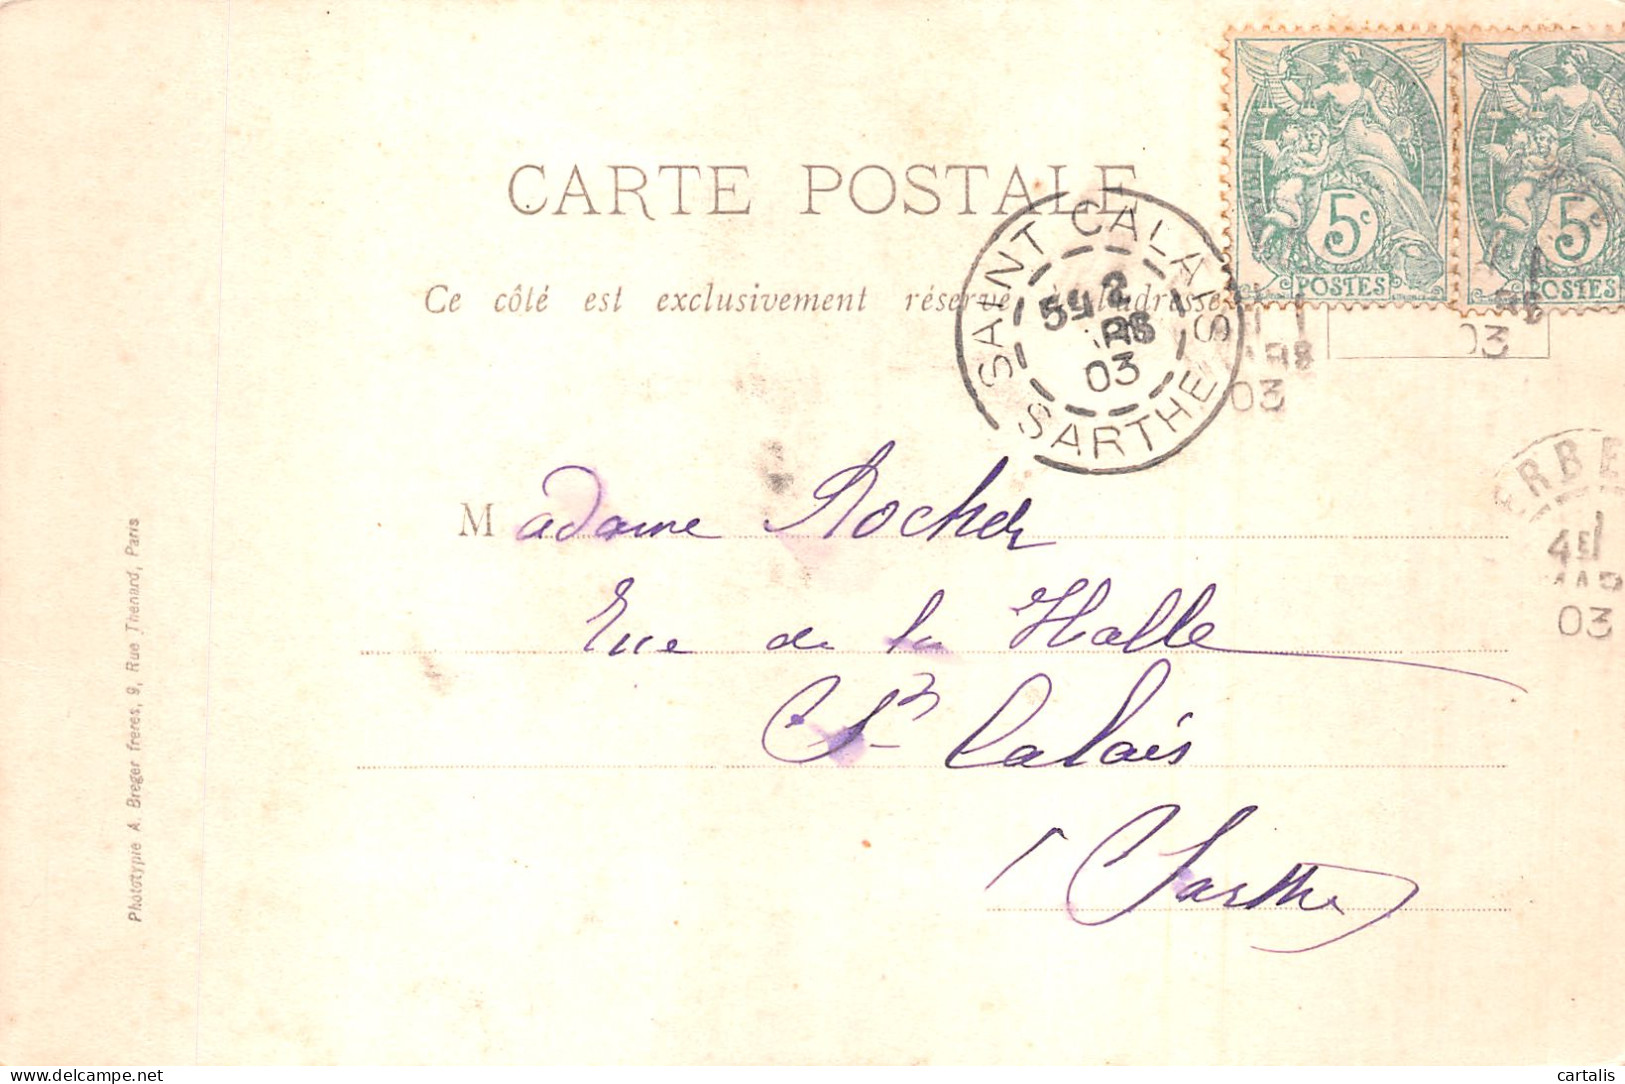 CARTE POSTALE
Ce côté est exclusivement réservé à l'adresse
SAINT CALAIS
SARTHE
03
5c
POSTES
5c
POSTES
03
03
ERBE
4E
03
Madame Rocher
Rue de la Halle
St Calais
Sarthe
Phototypie A. Breger freres, 9, Rue Thenard, Paris
www.delcampe.net
cartalis